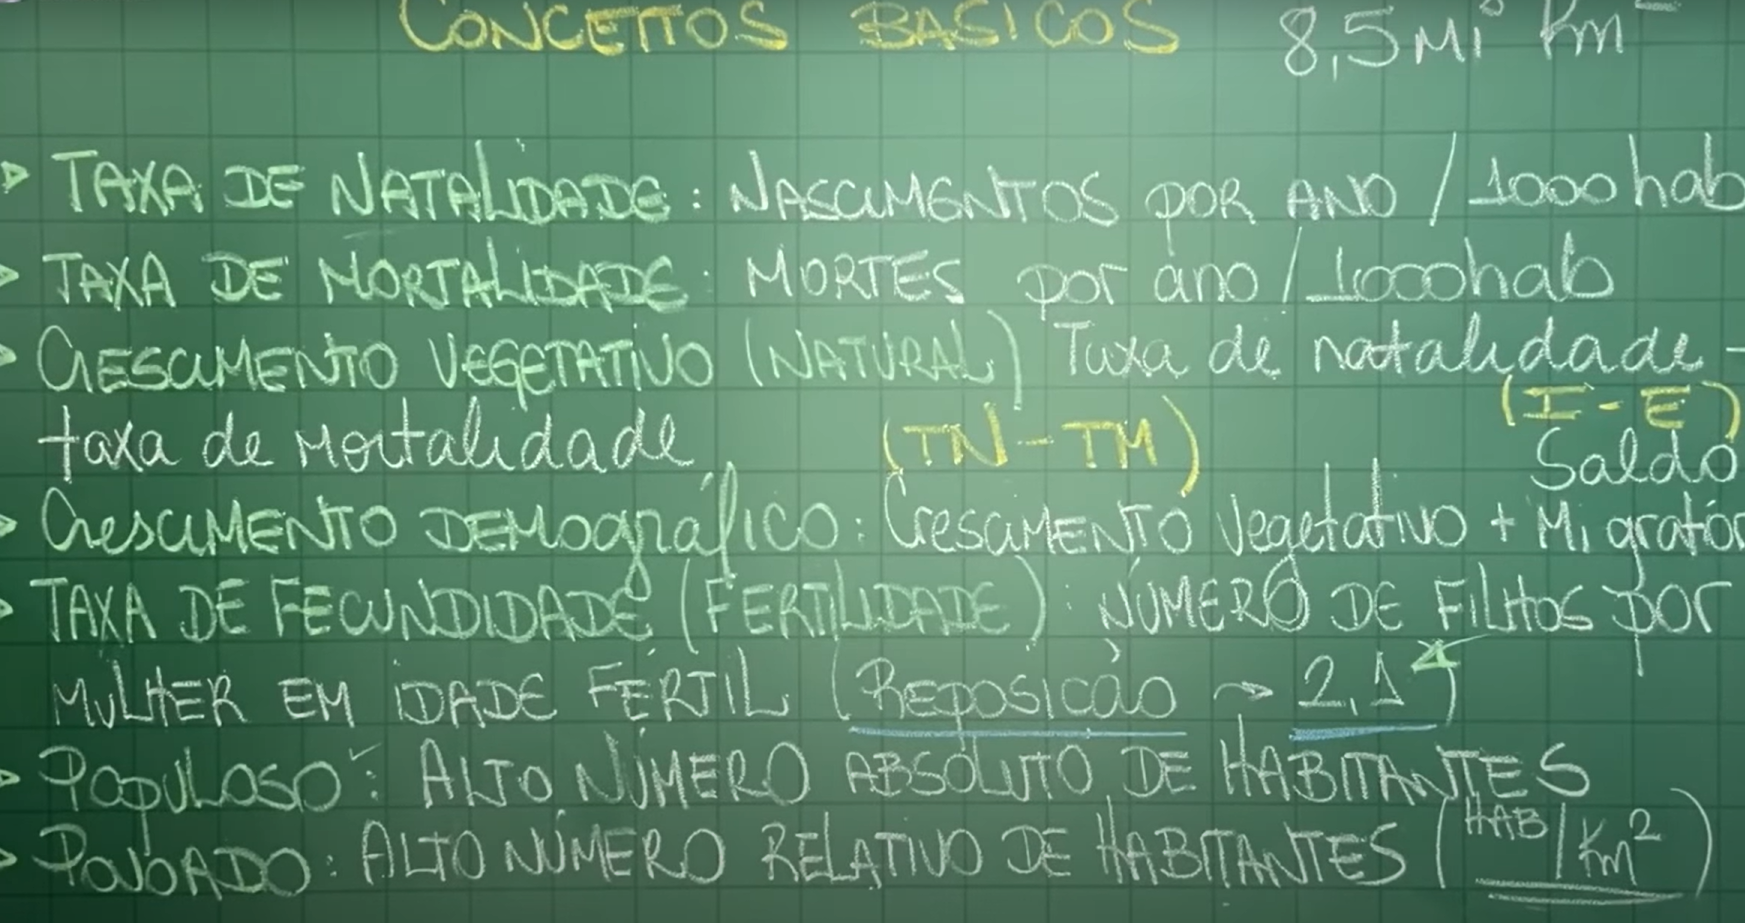 CONCEITOS BÁSICOS 8,5 Mi Km²
TAXA DE NATALIDADE: NASCIMENTOS POR ANO / 1000 hab
TAXA DE MORTALIDADE: MORTES por ano / 1000 hab
CRESCIMENTO VEGETATIVO (NATURAL) Taxa de natalidade -
taxa de Mortalidade (TN - TM) (I - E)
Saldo
Crescimento DEMOgráfico: Crescimento Vegetativo + Migratór
TAXA DE FECUNDIDADE (FERTILIDADE): NÚMERO DE FILHOS por
MULHER EM IDADE FÉRTIL (Reposição → 2,1)
POPULOSO: ALTO NÚMERO ABSOLUTO DE HABITANTES
POVOADO: ALTO NÚMERO RELATIVO DE HABITANTES (HAB/Km²)